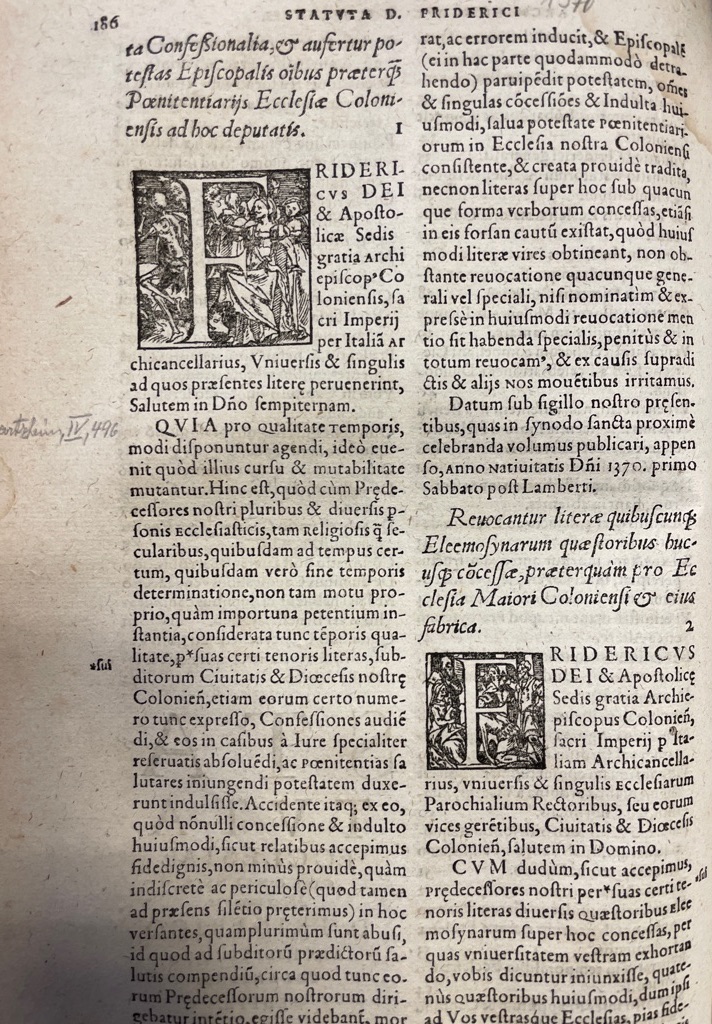 186
STATVTA D. FRIDERICI
1370
ta Confeßionalia, & aufertur po-
testas Episcopalis oībus præterq̃
Pœnitentiarijs Ecclesiæ Coloni-
ensis ad hoc deputatis. 1
FRIDERI-
CVS DEI
& Aposto-
licæ Sedis
gratia Archi
episcopꝰ Co
loniensis, sa
cri Imperij
per Italiā Ar
chicancellarius, Vniuersis & singulis
ad quos præsentes literę peruenerint,
Salutem in Dño sempiternam.
QVIA pro qualitate Temporis,
modi disponuntur agendi, ideò eue-
nit quòd illius cursu & mutabilitate
mutantur. Hinc est, quòd cùm Pręde-
cessores nostri pluribus & diuersis p-
sonis Ecclesiasticis, tam Religiosis q̃ se-
cularibus, quibusdam ad tempus cer-
tum, quibusdam verò sine temporis
determinatione, non tam motu pro-
prio, quàm importuna petentium in-
stantia, considerata tunc tēporis qua-
litate, p*suas certi tenoris literas, sub-
*sui
ditorum Ciuitatis & Diœcesis nostrę
Colonień, etiam eorum certo nume-
ro tunc expresso, Confessiones audiē
di, & eos in casibus à Iure specialiter
reseruatis absoluēdi, ac Pœnitentias sa
lutares iniungendi potestatem duxe-
runt indulsisse. Accidente itaq; ex eo,
quòd nōnulli concessione & indulto
huiusmodi, sicut relatibus accepimus
fidedignis, non minùs prouidè, quàm
indiscretè ac periculosè (quod tamen
ad præsens silētio pręterimus) in hoc
versantes, quamplurimùm sunt abusi,
id quod ad subditorū prædictorū sa-
lutis compendiū, circa quod tunc eo-
rum Prędecessorum nostrorum diri-
gebatur intētio, egisse videbant, mor
IV, 496
rat, ac errorem inducit, & Episcopalē
(ei in hac parte quodammodò detra-
hendo) paruipēdit potestatem, oēs
& singulas cōcessiões & Indulta hui-
usmodi, salua potestate Pœnitentiari-
orum in Ecclesia nostra Coloniensi
consistente, & creata prouidè tradita,
necnon literas super hoc sub quacun
que forma verborum concessas, etiāsi
in eis forsan cautū existat, quòd huius
modi literæ vires obtineant, non ob-
stante reuocatione quacunque gene-
rali vel speciali, nisi nominatim & ex-
pressè in huiusmodi reuocatione men
tio sit habenda specialis, penitùs & in
totum reuocamꝰ, & ex causis supradi
ctis & alijs Nos mouētibus irritamus.
Datum sub sigillo nostro pręsen-
tibus, quas in synodo sancta proximè
celebranda volumus publicari, appen
so, Anno Natiuitatis Dñi 1370. primo
Sabbato post Lamberti.
Reuocantur literæ quibuscunq;
Eleemosynarum quæstoribus huc-
usq; cōcessæ, præterquàm pro Ec
clesia Maiori Coloniensi & eius
fabrica. 2
FRIDERICVS
DEI & Apostolicę
Sedis gratia Archie-
piscopus Colonień,
sacri Imperij p Ita-
liam Archicancella-
rius, vniuersis & singulis Ecclesiarum
Parochialium Rectoribus, seu eorum
vices gerētibus, Ciuitatis & Diœcesis
Colonień, salutem in Domino.
CVM dudùm, sicut accepimus,
Prędecessores nostri per*suas certi te-
*sui
noris literas diuersis Quæstoribus Elee
mosynarum super hoc concessas, per
quas vniuersitatem vestram exhortan
do, vobis dicuntur iniunxisse, quate-
nùs Quæstoribus huiusmodi, dum ipsi
ad Vos vestrasque Ecclesias, pias fide-